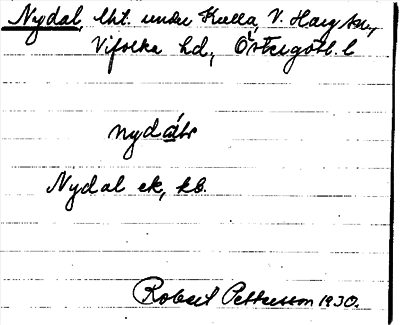 Nydal, lht. under Kulla, V. Harg sn,
Vifolka hd, Östergötl. l
nydálr
Nydal ek, kb.
Robert Pettersson 1930.